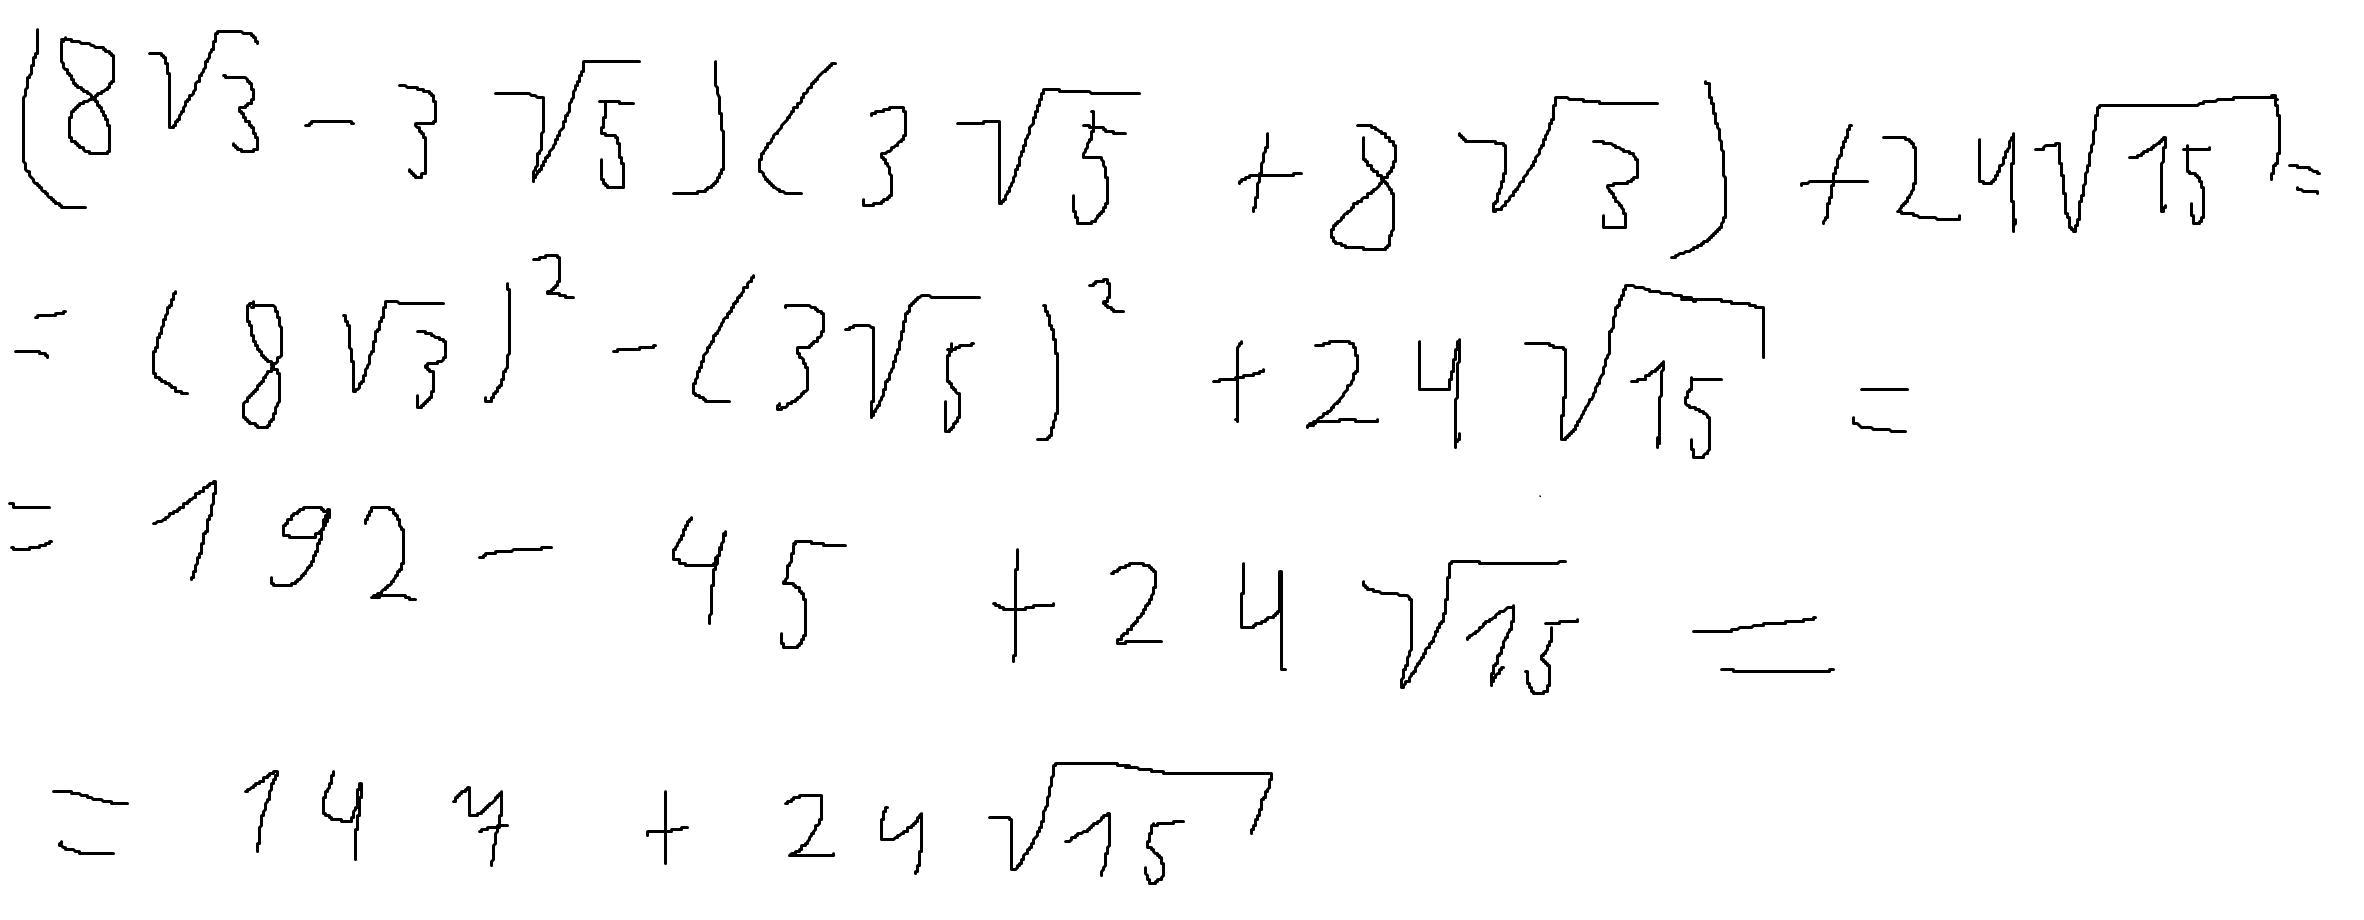 (8√3 - 3√5)(3√5 + 8√3) + 24√15 =
= (8√3)² - (3√5)² + 24√15 =
= 192 - 45 + 24√15 =
= 147 + 24√15